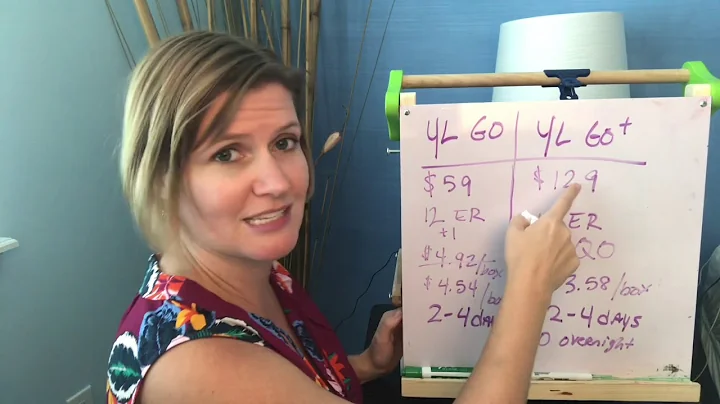 YL GO
YL GO+
$59
$129
12 ER
ER
+1
QO
$4.92/box
3.58/box
$4.54/
2-4
2-4 days
overnight